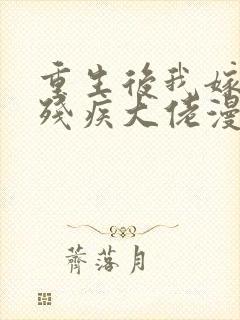 重生後我嫁
殘疾大佬漫
薺落月